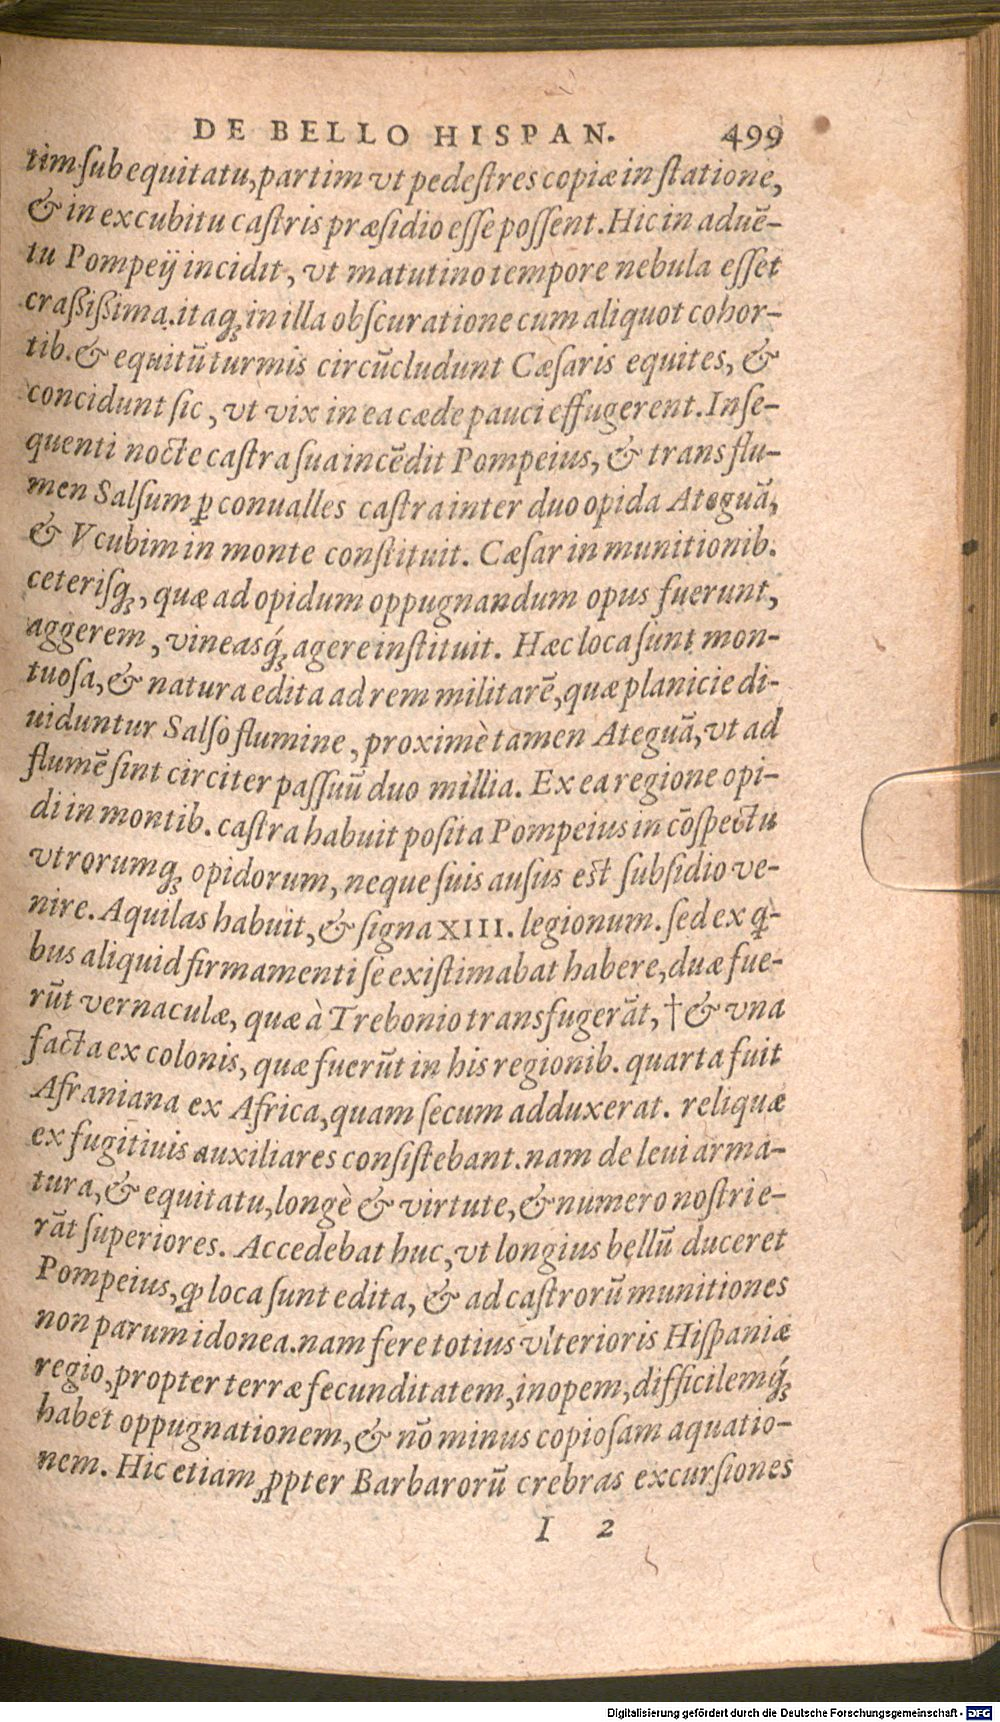 DE BELLO HISPAN. 499
tim sub equitatu, partim vt pedeſtres copiæ in ſtatione,
& in excubitu caſtris præſidio eſſe poſſent. Hic in aduē-
tu Pompeij incidit, vt matutino tempore nebula eſſet
craßißima. itaq́; in illa obſcuratione cum aliquot cohor-
tib. & equitū turmis circūcludunt Cæſaris equites, &
concidunt ſic, vt vix in ea cæde pauci effugerent. Inſe-
quenti nocte caſtra ſua incēdit Pompeius, & trans flu-
men Salſum ꝑ conualles caſtra inter duo opida Ateguā,
& Vcubim in monte conſtituit. Cæſar in munitionib.
ceteriſq́;, quæ ad opidum oppugnandum opus fuerunt,
aggerem, vineasq́; agere inſtituit. Hæc loca ſunt mon-
tuoſa, & natura edita ad rem militarē, quæ planicie di-
uiduntur Salſo flumine, proximè tamen Ateguā, vt ad
flumē ſint circiter paſſuū duo millia. Ex ea regione opi-
di in montib. caſtra habuit poſita Pompeius in cōſpectu
vtrorumq́; opidorum, neque ſuis auſus eſt ſubſidio ve-
nire. Aquilas habuit, & ſigna XIII. legionum. ſed ex q̃-
bus aliquid firmamenti ſe exiſtimabat habere, duæ fue-
rūt vernaculæ, quæ à Trebonio transfugerāt, † & vna
facta ex colonis, quæ fuerūt in his regionib. quarta fuit
Afraniana ex Africa, quam ſecum adduxerat. reliquæ
ex fugitiuis auxiliares conſiſtebant. nam de leui arma-
tura, & equitatu, longè & virtute, & numero noſtri e-
rāt ſuperiores. Accedebat huc, vt longius bellū duceret
Pompeius, ꝙ loca ſunt edita, & ad caſtrorū munitiones
non parum idonea. nam fere totius vlterioris Hiſpaniæ
regio, propter terræ fecunditatem, inopem, difficilemq́;
habet oppugnationem, & nō minus copioſam aquatio-
nem. Hic etiam ꝓpter Barbarorū crebras excurſiones
I 2
Digitalisierung gefördert durch die Deutsche Forschungsgemeinschaft - DFG